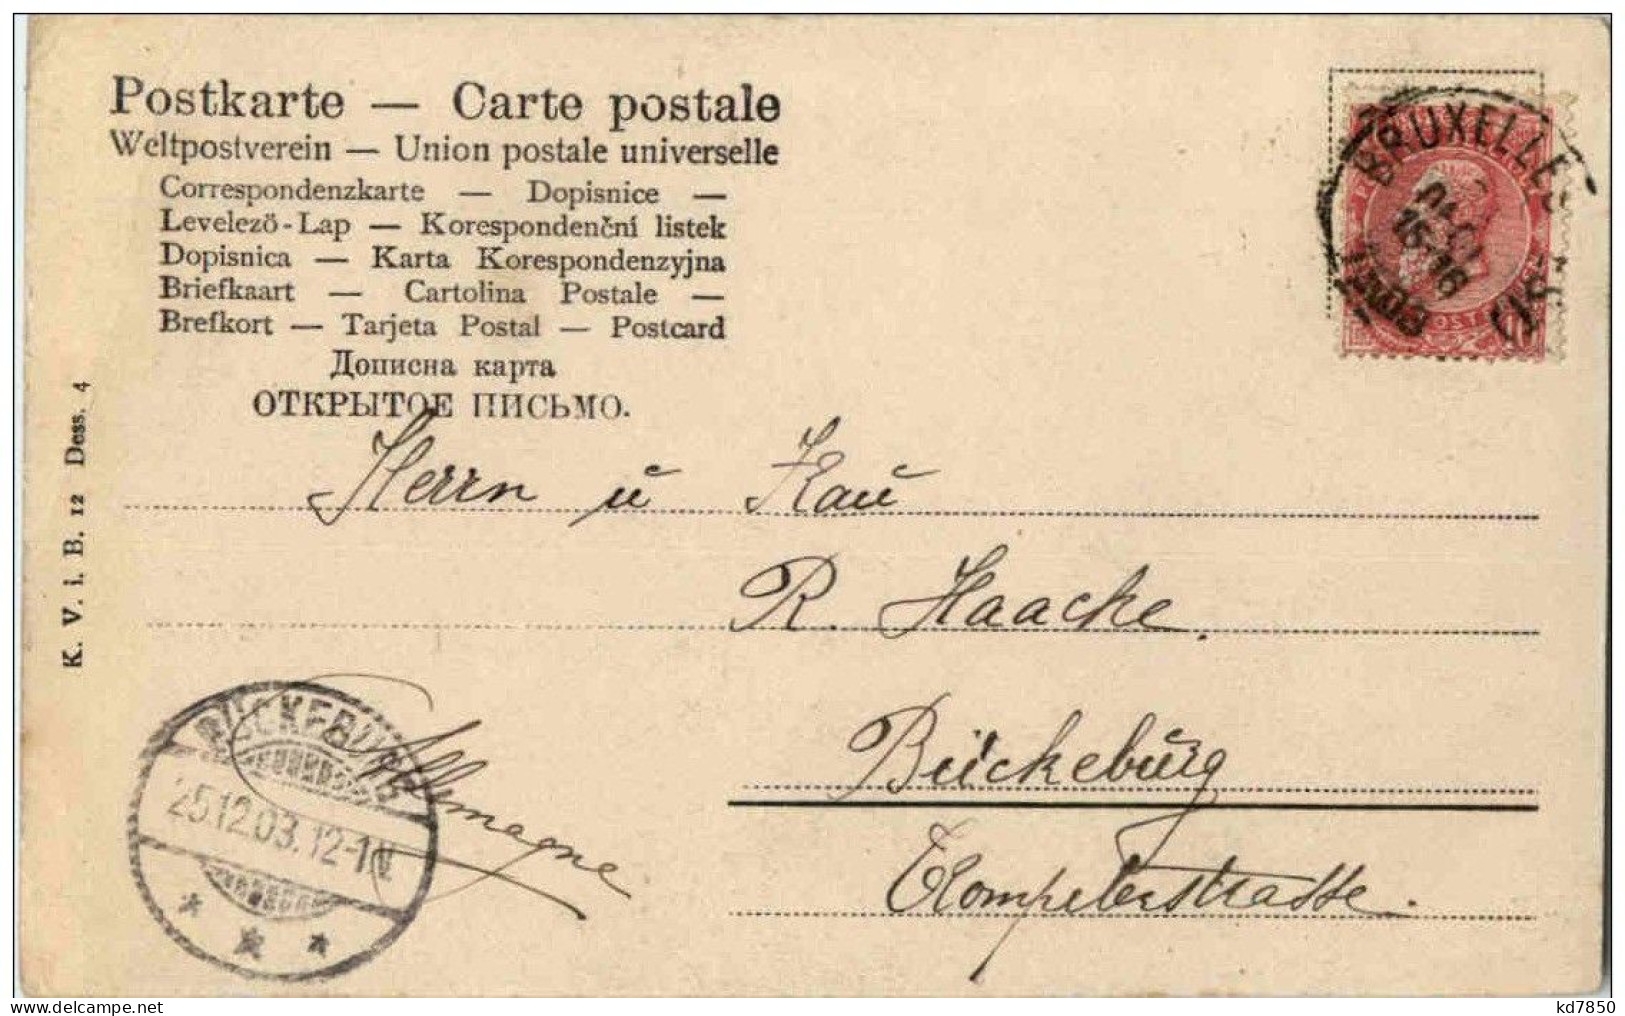 Postkarte — Carte postale
Weltpostverein — Union postale universelle
Correspondenzkarte — Dopisnice —
Levelező-Lap — Korespondenční listek
Dopisnica — Karta Korespondenzyjna
Briefkaart — Cartolina Postale —
Brefkort — Tarjeta Postal — Postcard
Дописна карта
ОТКРЫТОЕ ПИСЬМО.
K. V. i. B. 12 Dess. 4
BRUXELLES
15-16
1903
Herrn u Frau
R. Haacke.
Bückeburg
Allemagne
BÜCKEBURG
25.12.03. 12-1V.
delcampe.net
kd7850